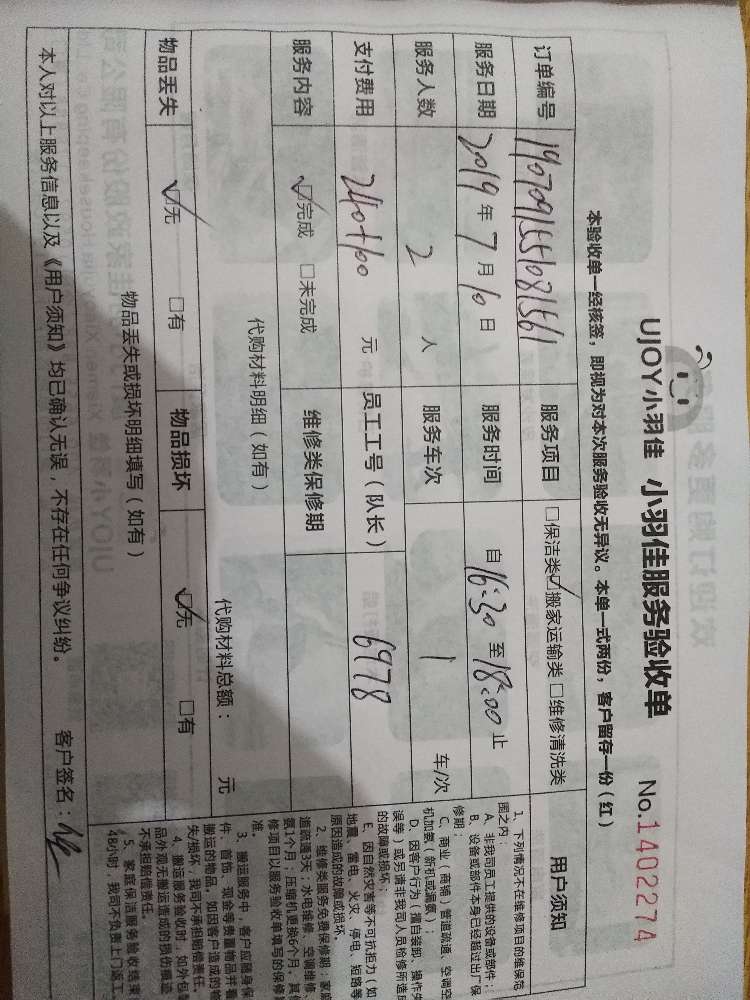 UJOY小羽佳 小羽佳服务验收单 No.1402274
本验收单一经核签，即视为对本次服务验收无异议。本单一式两份，客户留存一份（红）
订单编号 1907091551081561 服务项目 □保洁类☑搬家运输类□维修清洗类
服务日期 2019年7月10日 服务时间 自16:30至18:00止
服务人数 2人 服务车次 1车/次
支付费用 240+100元 员工工号（队长） 6978
服务内容 ☑完成 □未完成 维修类保修期
代购材料明细（如有）
代购材料总额： 元
物品丢失 ☑无 □有 物品损坏 ☑无 □有
物品丢失或损坏明细填写（如有）
本人对以上服务信息以及《用户须知》均已确认无误，不存在任何争议纠纷。 客户签名：
用户须知
1、下列情况不在维修项目的维保范
围之内：
A、非我司员工提供的设备或部件；
B、设备或部件本身已经超过出厂保
修期；
C、商业（商铺）管道疏通、空调空
机加氨（新机或漏氨）；
D、因客户行为（擅自装卸、操作失
误等）或另请非我司人员检修所造成
的故障或损坏；
E、因自然灾害等不可抗拒力（如
地震、雷电、火灾、停电、短路等
原因造成的故障或损坏。
2、维修类服务免费保修期：家庭
道疏通3天；水电维修、空调维修、
氨1个月；压缩机更换6个月，其他
修项目以服务验收单填写的保修
准。
3、搬运服务中，客户应随身保
件、首饰、现金等贵重物品并看
搬运的物品，如因客户造成的物
失/损坏，我司不承担赔偿责任。
4、搬运服务验收时，如外包装
品外观无搬运造成的损伤痕迹
不承担赔偿责任。
5、家庭保洁服务验收结束
48小时，我司不负责上门返工